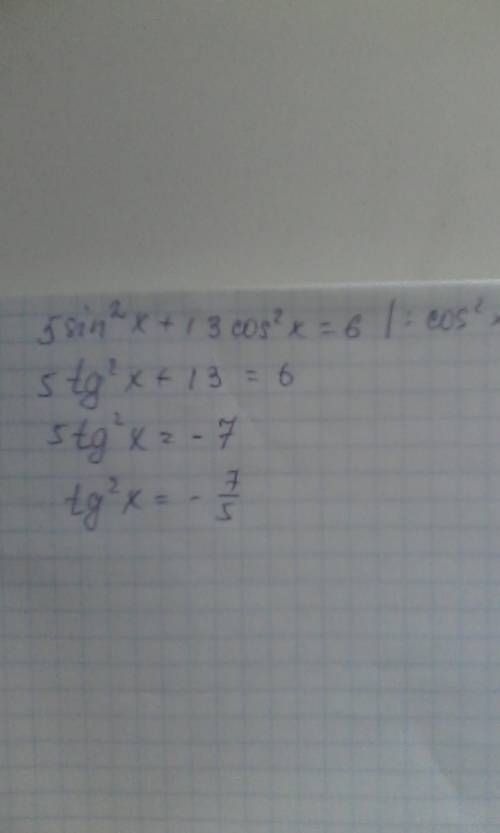 5sin²x + 13cos²x = 6 | : cos²x
5tg²x + 13 = 6
5tg²x = - 7
tg²x = - 7/5